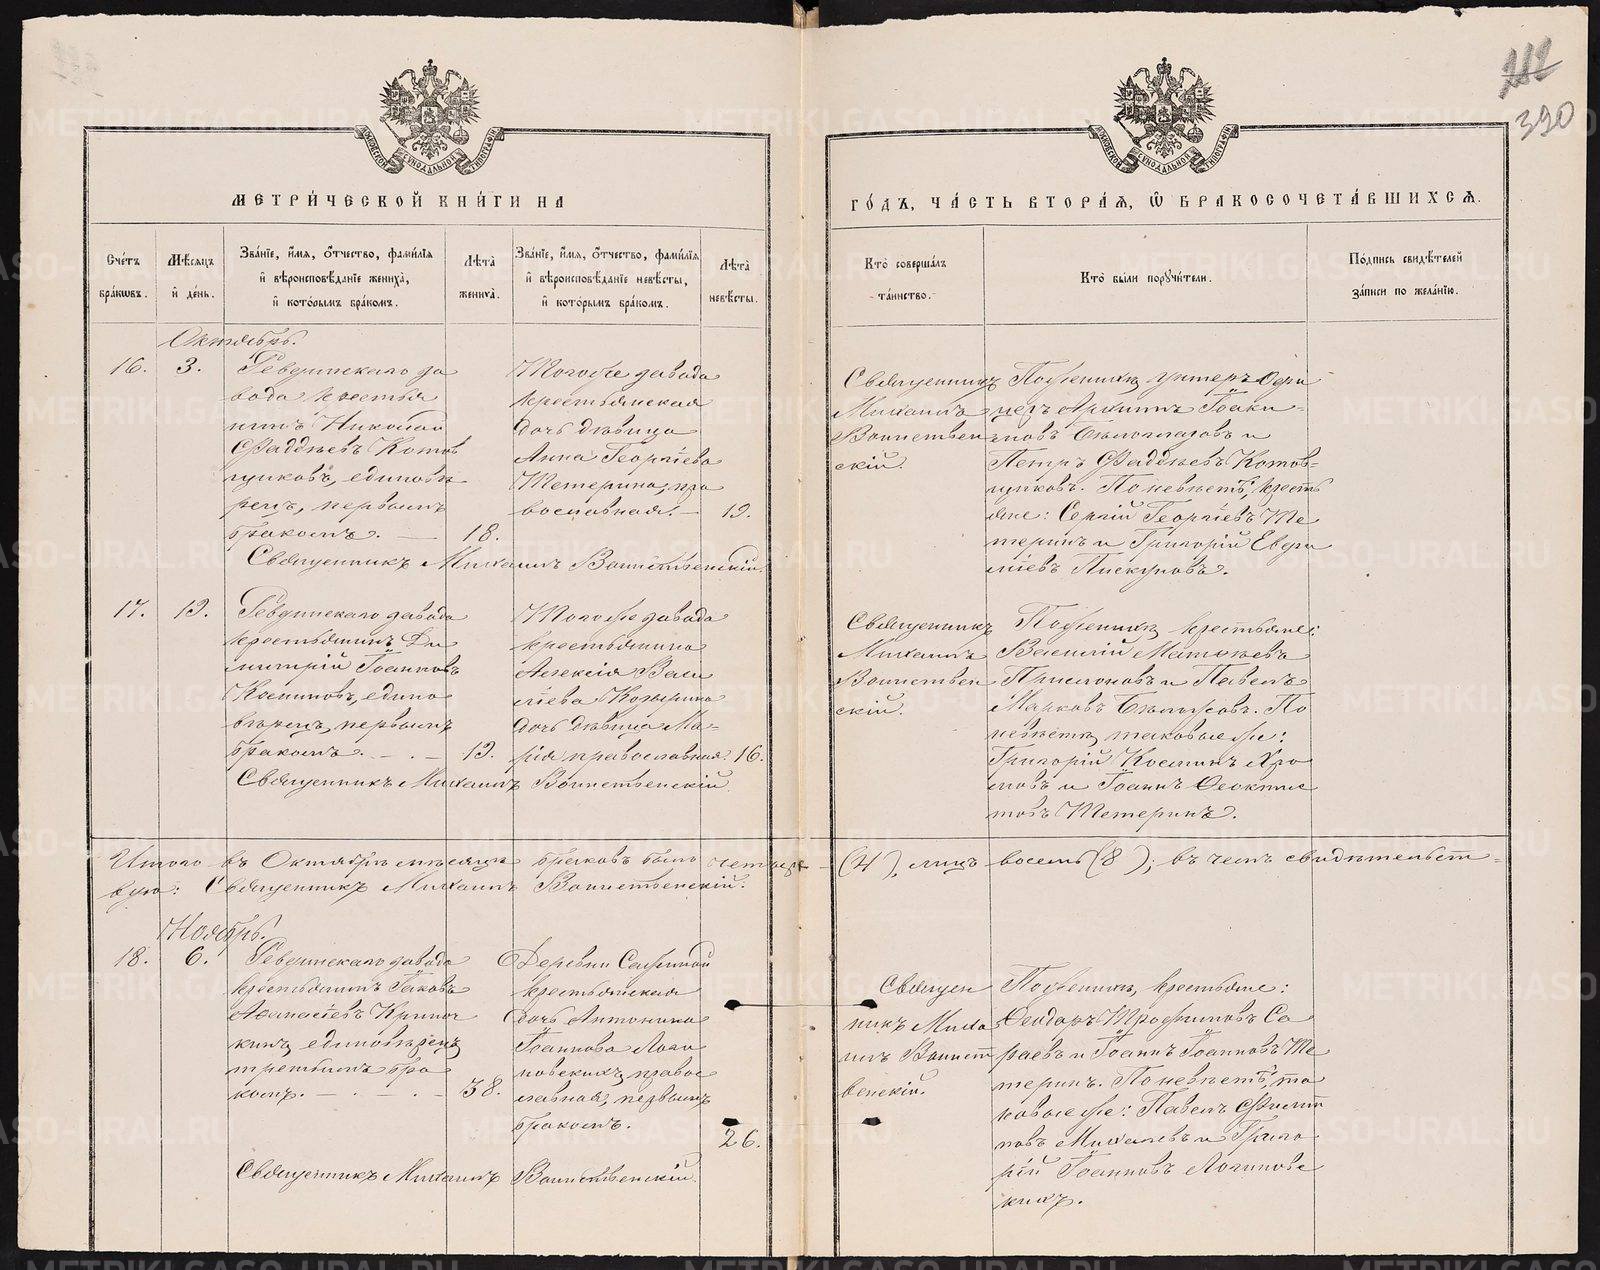 390
МЕТРИ́ЧЕСКОЙ КНИ́ГИ НА
ГО́ДЪ, ЧА́СТЬ ВТОРА́Я, Ѽ БРАКОСОЧЕТА́ВШИХСЯ.
Сче́тъ бра́ковъ.
Мѣ́сяцъ и де́нь.
Зва́нїе, и́мя, ѻ́тчество, фами́лїя и вѣроисповѣ́данїе жениха̀, и кото́рымъ бра́комъ.
Лѣта̀ жениха̀.
Зва́нїе, и́мя, ѻ́тчество, фами́лїя и вѣроисповѣ́данїе невѣ́сты, и кото́рымъ бра́комъ.
Лѣта̀ невѣ́сты.
Кто̀ соверша́лъ та́инство.
Кто̀ бы́ли поручи́тели.
По́дпись свидѣ́телей за́писи по жела́нїю.
Октябрь.
16.
3.
Ревдинскаго за
вода крестья
нинъ Николай
Фаддѣевъ Котов
щиковъ, единовѣ
рецъ, первымъ
бракомъ.
18.
Того же завода
крестьянская
дочь дѣвица
Анна Георгіева
Тетерина, пра
вославная.
19.
Священникъ
Михаилъ
Воинствен
скій.
По женихѣ унтеръ Офи
церъ Архипъ Іоаки-
мовъ Бѣлоглазовъ и
Петръ Фаддѣевъ Котов-
щиковъ. По невѣстѣ, кресть
яне: Сергій Георгіевъ Те
теринъ и Григорій Евген
іевъ Пискуновъ.
Священникъ Михаилъ Воинственскій.
17.
19.
Ревдинскаго завода
крестьянинъ Ди
митрій Іоанновъ
единo
вѣрецъ, первымъ
бракомъ.
19.
Того же завода
крестьянина
Алексія Васи
ліева Козырина
дочь дѣвица Ма-
рія православная.
16.
Священникъ
Михаилъ
Воинствен
скій.
По женихѣ крестьяне:
Василій Матѳѣевъ
и Павелъ
Марковъ По
невѣстѣ таковые же:
Григорій Козминъ Хро
мовъ и Іоаннъ Ѳеоктис
товъ Тетеринъ.
Священникъ Михаилъ Воинственскій.
Итого въ Октябрѣ мѣсяцѣ браковъ было четыре (4), лицъ восемь (8); въ чемъ свидѣтельст-
вую: Священникъ Михаилъ Воинственскій.
Ноябрь.
18.
6.
Ревдинскаго завода
крестьянинъ Іаковъ
Аѳанасіевъ
единовѣрецъ
третьимъ бра
комъ.
38.
Деревни
крестьянская
дочь Антонина
Іоаннова Логи
новскихъ, правос
лавная, первымъ
бракомъ.
26.
Священ
никъ Миха
илъ Воинст
венскій.
По женихѣ, крестьяне:
Ѳеодоръ Трофимовъ Са
раевъ и Іоаннъ Іоанновъ Те
теринъ. По невѣстѣ, та
ковые же: Павелъ Филип
повъ Михалевъ и Григо
рій Іоанновъ Логиновс
кихъ.
Священникъ Михаилъ Воинственскій.
METRIKI.GASO-URAL.RU